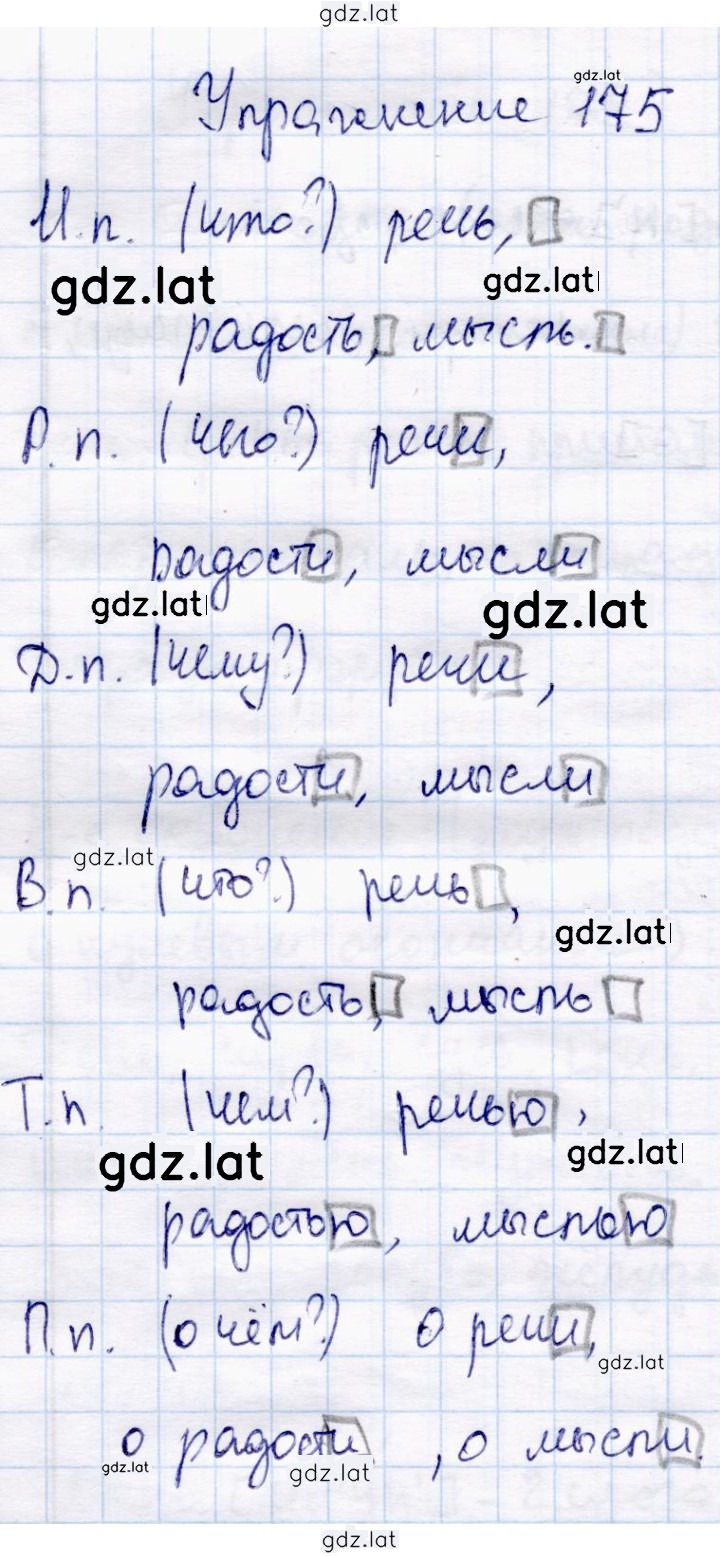 gdz.lat
gdz.lat
Упражнение 175
И.п. (что?) речь,
gdz.lat gdz.lat
радость, мысль.
Р.п. (чего?) речи,
радости, мысли
gdz.lat gdz.lat
Д.п. (чему?) речи,
радости, мысли
gdz.lat
В.п. (что?) речь,
gdz.lat
радость, мысль
Т.п. (чем?) речью,
gdz.lat gdz.lat
радостью, мыслью
П.п. (о чём?) о речи,
gdz.lat
о радости, о мысли.
gdz.lat gdz.lat
gdz.lat